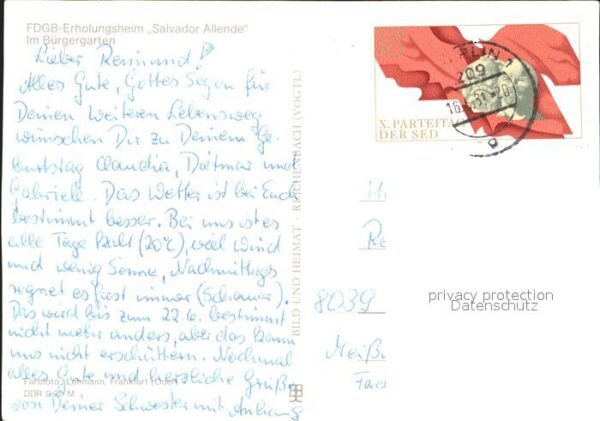 FDGB-Erholungsheim „Salvador Allende"
Im Bürgergarten
Lieber Reimund!
Alles Gute, Gottes Segen für
Deinen weiteren Lebensweg
wünschen Dir zu Deinem Ge-
burtstag Claudia, Dietmar und
Gabriele. Das Wetter ist bei Euch
bestimmt besser. Bei uns ist es
alle Tage kalt (20°C), viel Wind
und wenig Sonne, Nachmittags
regnet es fast immer (Schauer).
Das wird bis zum 22.6. bestimmt
nicht mehr anders, aber das kann
uns nicht erschüttern. Nochmal
alles Gute und herzliche Grüße
von Deiner Schwester mit Anhang
Farbfoto: Lehmann, Frankfurt (Oder)
DDR 0,20 M
BILD UND HEIMAT · REICHENBACH (VOGTL)
X. PARTEITAG
DER SED
209
8039
Meiß
privacy protection
Datenschutz